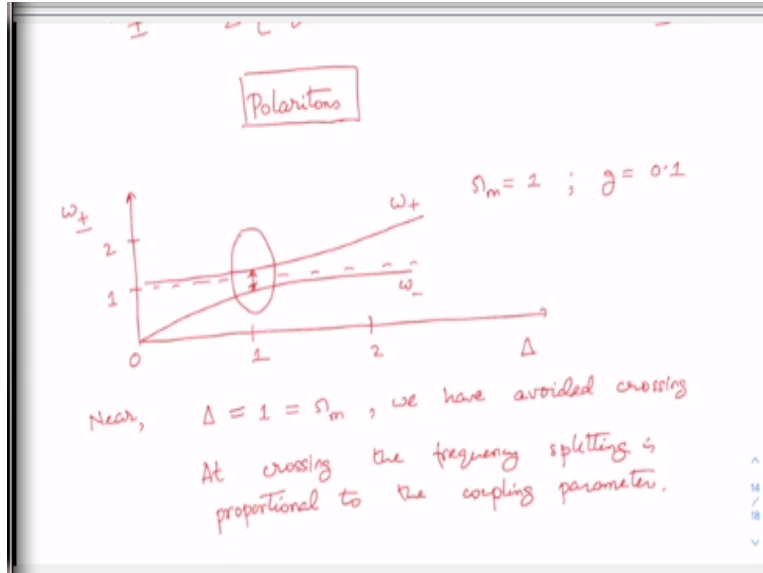 Polaritons
Ωm = 1 ; g = 0.1
ω±
ω+
2
1
ω-
0
1
2
Δ
Near, Δ = 1 = Ωm, we have avoided crossing
At crossing the frequency splitting is
proportional to the coupling parameter.
14
/
18